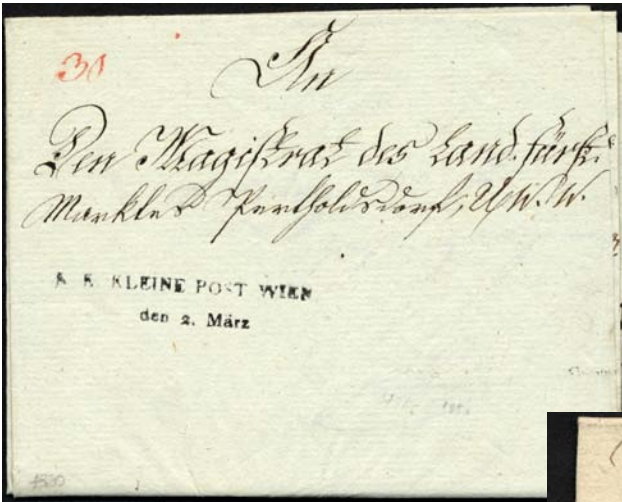 30
An
Den Magistrat des Land. fürstl.
Marktes Pertholdsdorf, U.W.W.
K. K. KLEINE POST WIEN
den 2. März